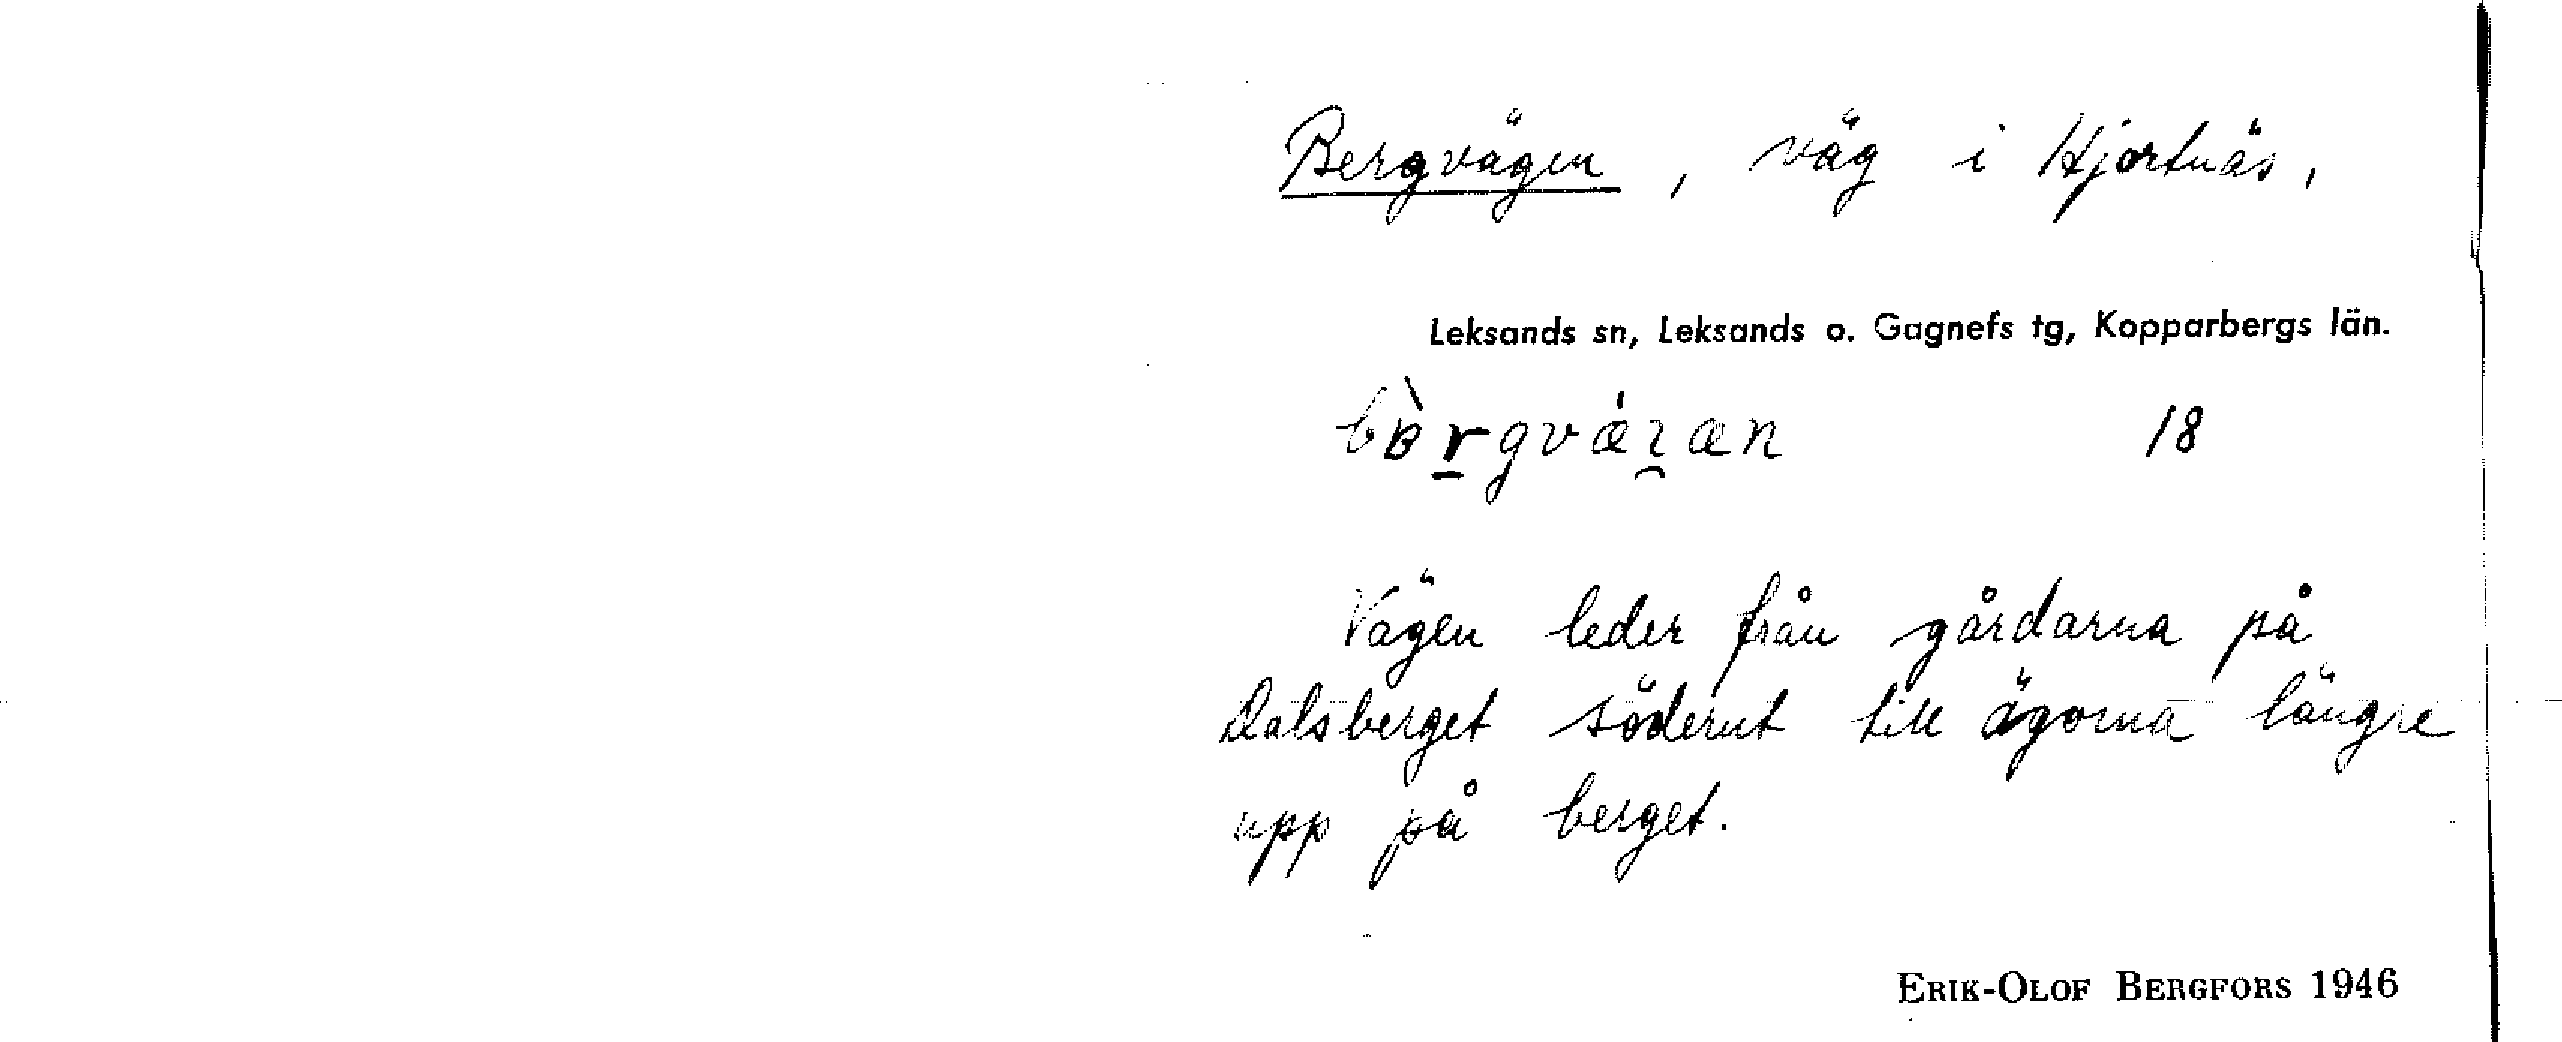 Bergvägen, väg i Hjortnäs,
Leksands sn, Leksands o. Gagnefs tg, Kopparbergs län.
18
Vägen leder från gårdarna på
Dalsberget söderut till ägorna längre
upp på berget.
ERIK-OLOF BERGFORS 1946